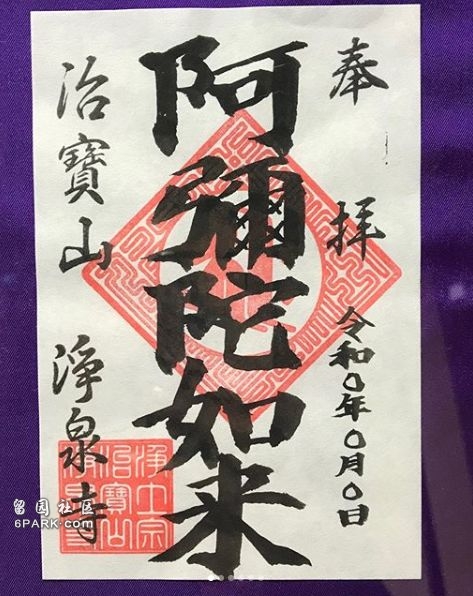 奉拝
令和〇年〇月〇日
阿彌陀如来
治寶山 淨泉寺
淨土宗
治寶山
留园社区
6PARK.COM